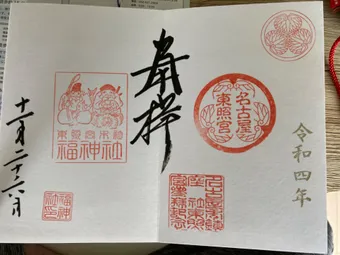 令和四年
名古屋
東照宮
奉拝
東照宮末社
福神社
福神
社印
十一月二十六日